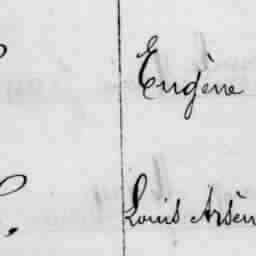 Eugène
Louis Arsèn